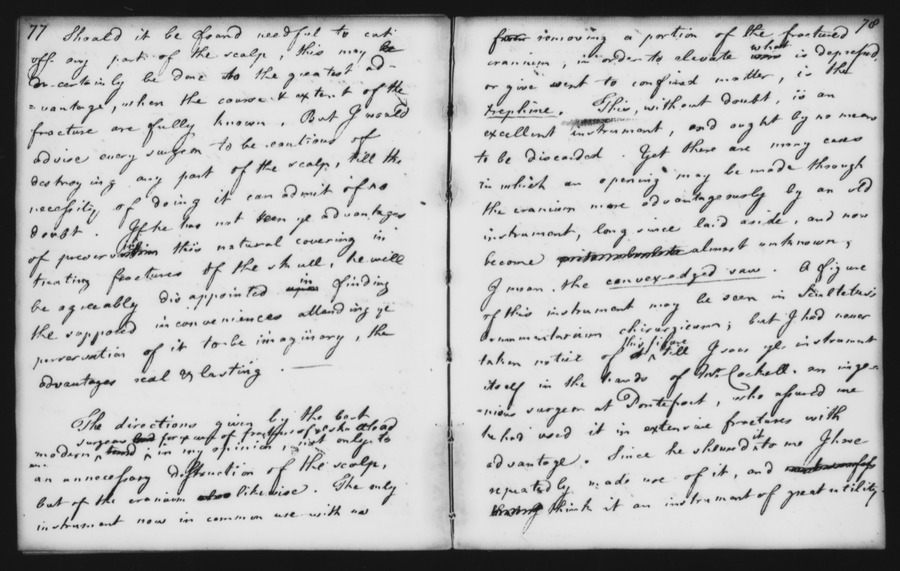 77
Should it be found needful to cut
off any part of the scalp, this may be
certainly be done to the greatest ad-
vantage, when the course & extent of the
fracture are fully known. But I would
advise every surgeon to be cautious of
destroying any part of the scalp, till the
necessity of doing it can admit of no
doubt. If he has not seen ye advantages
of preserving this natural covering in
treating fractures of the skull, he will
be agreeably disappointed in finding
the supposed inconveniences attending ye
preservation of it to be imaginary, the
advantages real & lasting.
The directions given by the best
modern surgeons for ye cure of fractures of ye skull tend
in my opinion, not only to
an unnecessary destruction of the scalp,
but of the cranium also likewise. The only
instrument now in common use with us
78
for removing a portion of the fractured
cranium, in order to elevate what is depressed,
or give vent to confined matter, is the
trephine. This, without doubt, is an
excellent instrument, and ought by no means
to be discarded. Yet there are many cases
in which an opening may be made through
the cranium more advantageously by an old
instrument, long since laid aside, and now
become almost unknown;
I mean, the convex-edged saw. A figure
of this instrument may be seen in Scultetus's
armamentarium chirurgicum; but I had never
taken notice of this figure till I saw ye instrument
itself in the hands of Mr. Cockell, an inge-
nious surgeon at Pontefract, who assured me
he had used it in extensive fractures with
advantage. Since he shewed it to me I have
repeatedly made use of it, and
think it an instrument of great utility.